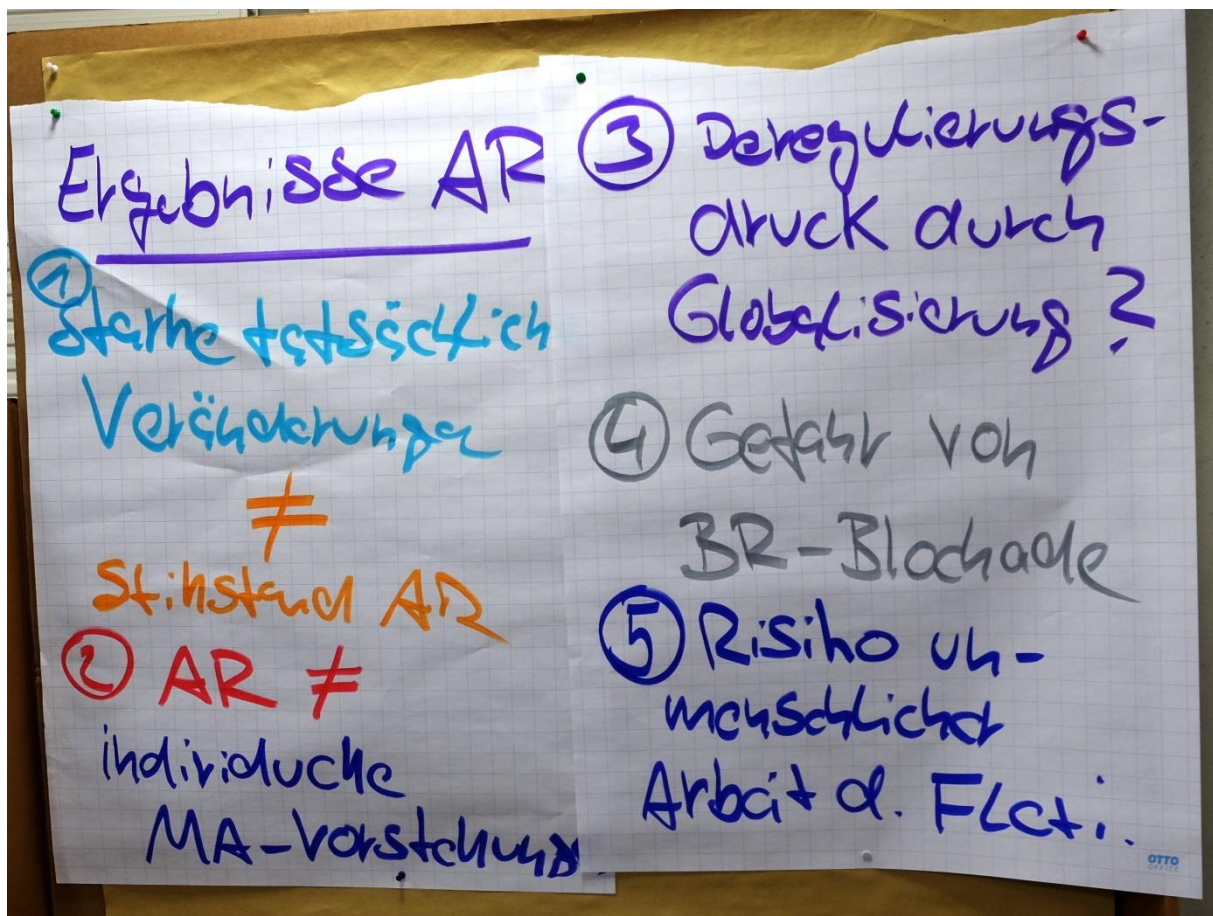 Ergebnisse AR
① Starke tatsächlich
Veränderungen
≠
Stillstand AR
② AR ≠
individuelle
MA-Vorstellung
③ Deregulierungs-
druck durch
Globalisierung?
④ Gefahr von
BR-Blockade
⑤ Risiko un-
menschlicher
Arbeit d. Flexi.
OTTO
OFFICE